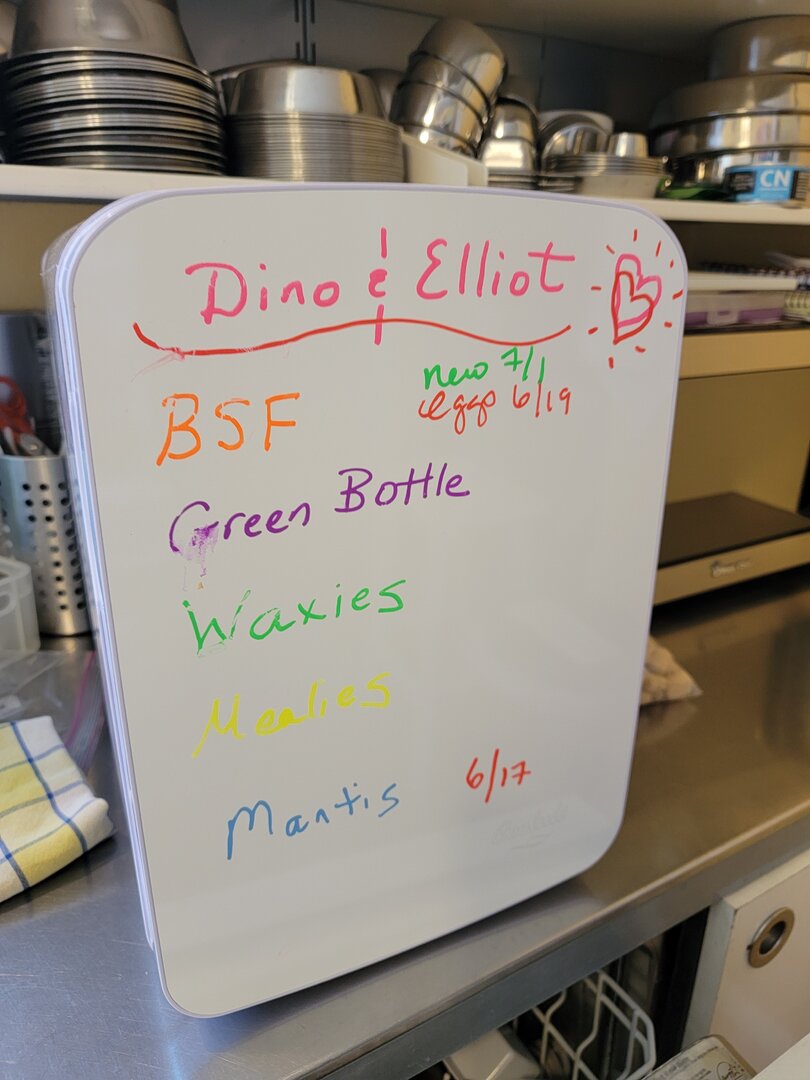 CN
Dino & Elliot
BSF new 7/1
eggs 6/19
Green Bottle
Waxies
Mealies
Mantis 6/17